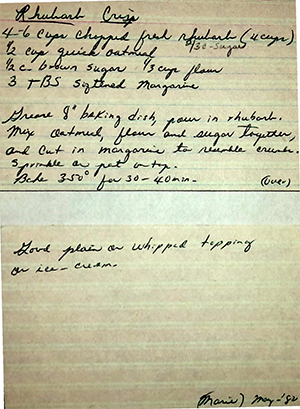 Rhubarb Crisp
4-6 cups chopped fresh rhubarb (4 cups)
1/3 c - sugar
1/2 cup quick oatmeal
1/2 c brown sugar 1/3 cup flour
3 TBS softened margarine
Grease 8" baking dish, pour in rhubarb.
Mix oatmeal, flour and sugar together,
and cut in margarine to resemble crumbs.
Sprinkle or pat on top.
Bake 350° for 30-40 min. (over)
Good plain or whipped topping
or ice-cream.
(Marie) May-'82